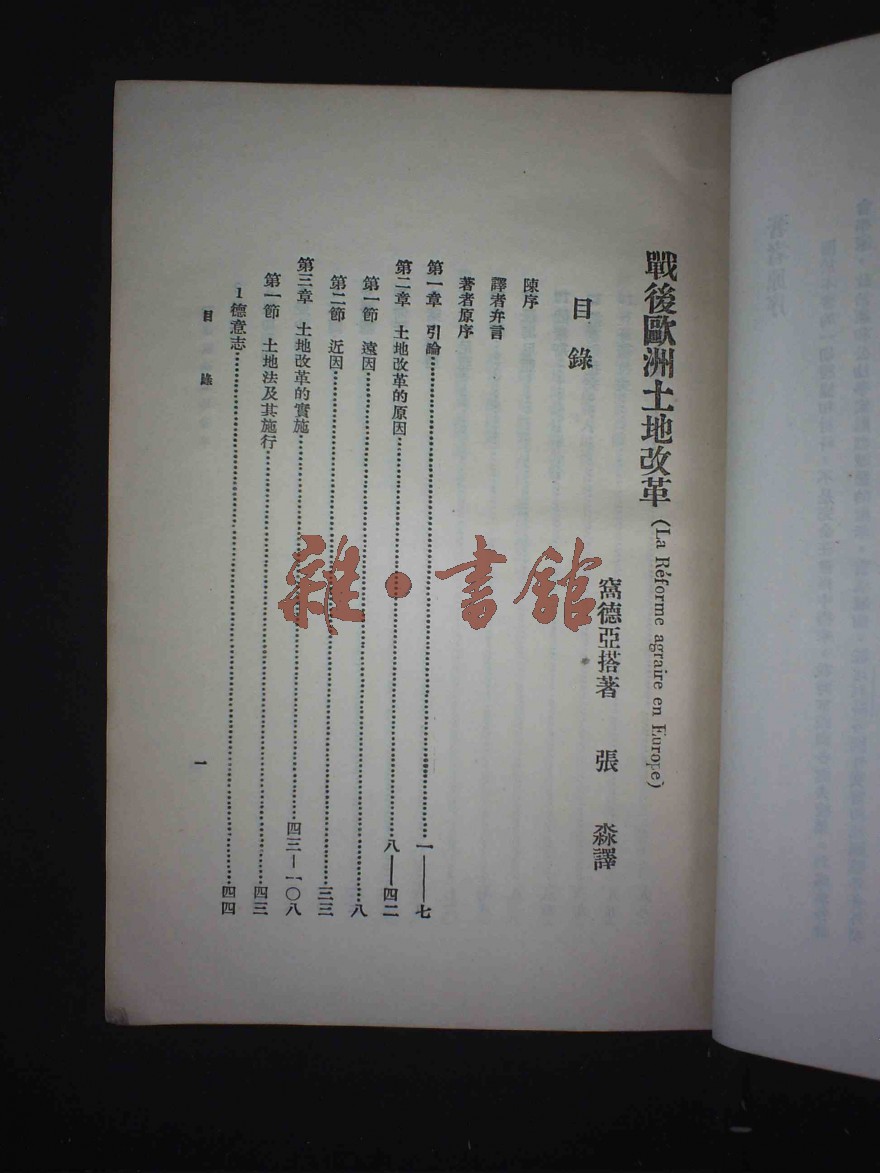 戰後歐洲土地改革 (La Réforme agraire en Europe)
窩德亞搭著　張　淼譯
目錄
陳序
譯者弁言
著者原序
第一章　引論……一——七
第二章　土地改革的原因……八——四二
第一節　遠因……八
第二節　近因……三三
第三章　土地改革的實施……四三—一〇八
第一節　土地法及其施行……四三
1 德意志……四四
目錄
一
雜·書館
著者原序